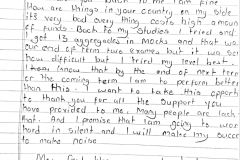 to me I am fine
How are things in your country on my side
its very bad every thing costs high amoun
of funds. Back to my Studies I tried and
got 13 aggregates in Mocks and that wa
our end of term two exams but it was
how difficult but I tried my level best
I know that by the end of next term
or the coming term I am to perform better
than this I want to take this opport
to thank you for all the support you
have provided to me. Many people are
that. And I promise that I am going to wor
hard in silent and I will make my succe
to make noise